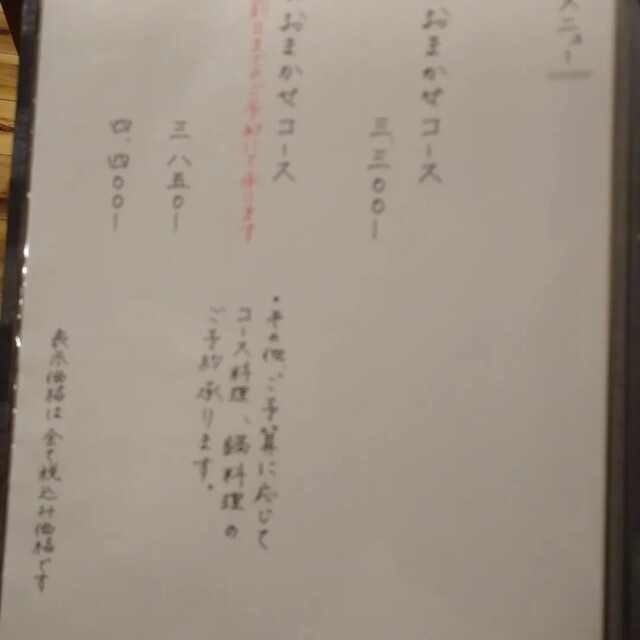 メニュー
おまかせコース
三、三〇〇ー
おまかせコース
前日までのご予約にて承ります
三、八五〇ー
四、四〇〇ー
・その他、ご予算に応じて
コース料理、鍋料理の
ご予約承ります。
表示価格は全て税込み価格です